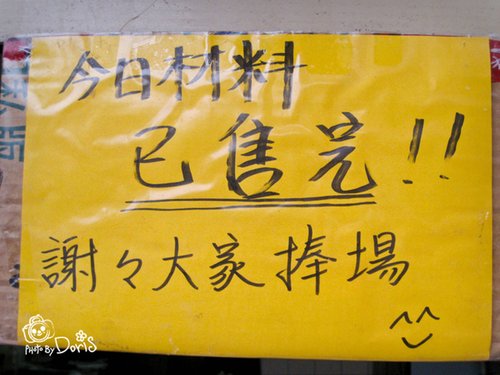 今日材料
已售完!!
謝々大家捧場
PHOTO BY DORIS